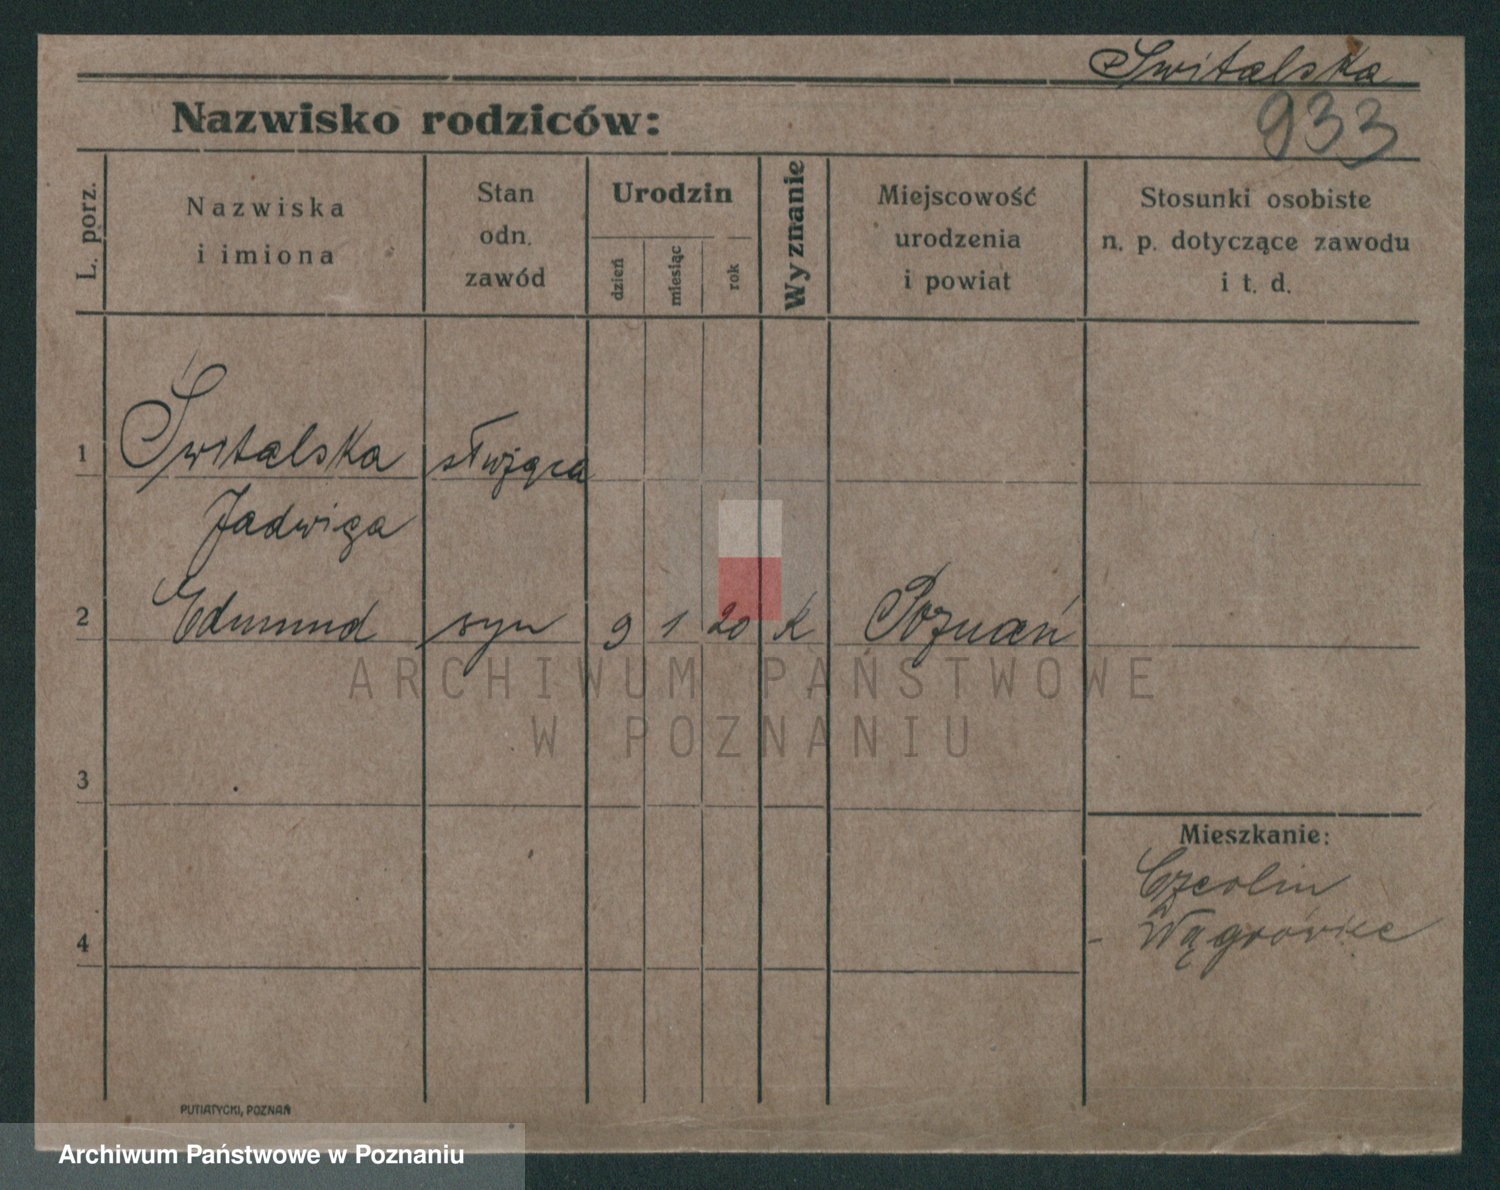 Switalska
Nazwisko rodziców:
933
L. porz.
Nazwiska
i imiona
Stan
odn.
zawód
Urodzin
dzień
miesiąc
rok
Wyznanie
Miejscowość
urodzenia
i powiat
Stosunki osobiste
n. p. dotyczące zawodu
i t. d.
1 Świtalska służąca
Jadwiga
2 Edmund syn 9 1 20 K Poznań
ARCHIWUM PAŃSTWOWE
W POZNANIU
3
Mieszkanie:
4
- Wągrówiec
PUTIATYCKI, POZNAŃ
Archiwum Państwowe w Poznaniu